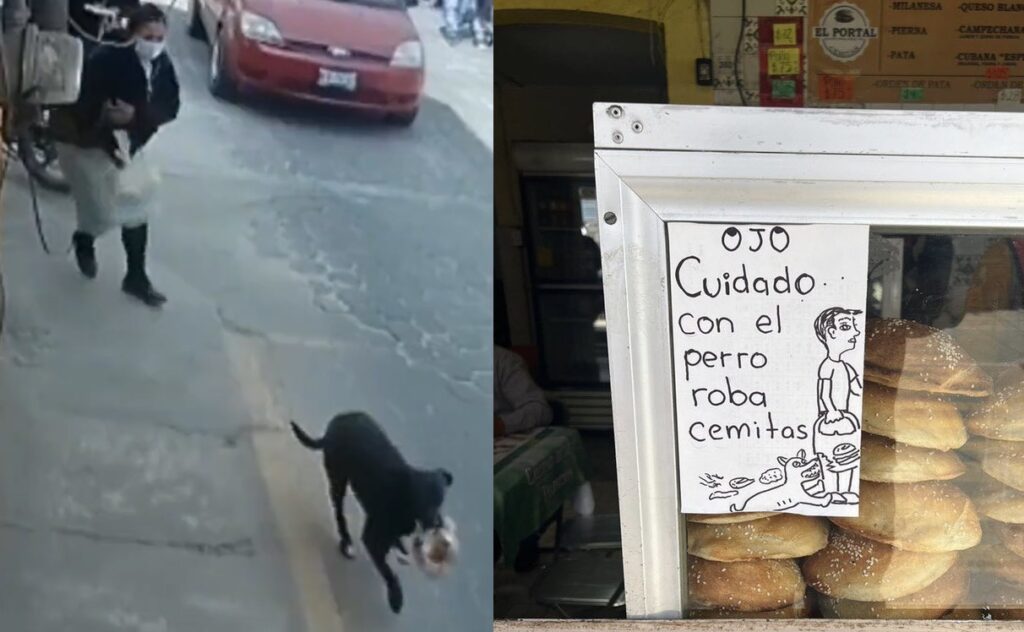 EL PORTAL
-MILANESA
-PIERNA
-PATA
-QUESO BLAN
-CAMPECHAN
-CUBANA "ESP
-ORDEN DE PATA
-ORDEN DE
OJO
Cuidado
con el
perro
roba
cemitas